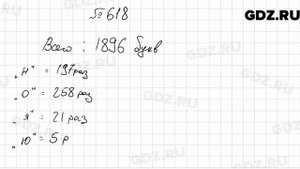 № 618
GDZ.RU
Всего : 1896 букв
„н" = 197 раз
„о" = 258 раз
„я" = 21 раз
„ю" = 5 р